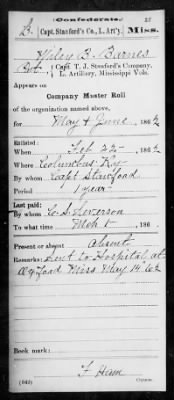 (Confederate.)
B. Capt. Stanford's Co., L. Art'y. Miss.
Wiley B. Barnes
Capt. T. J. Stanford's Company,
L. Artillery, Mississippi Vols.
Appears on
Company Muster Roll
of the organization named above,
for May & June 1862
Enlisted:
When Feb 22 , 186
Where Columbus Ky
By whom Capt Stanford
Period 1 year
Last paid:
By whom
To what time , 186
Present or absent Absent
Remarks: Sent to Hospital at
Oxford Miss May 14 62
Book mark:
Copyist.
(642)